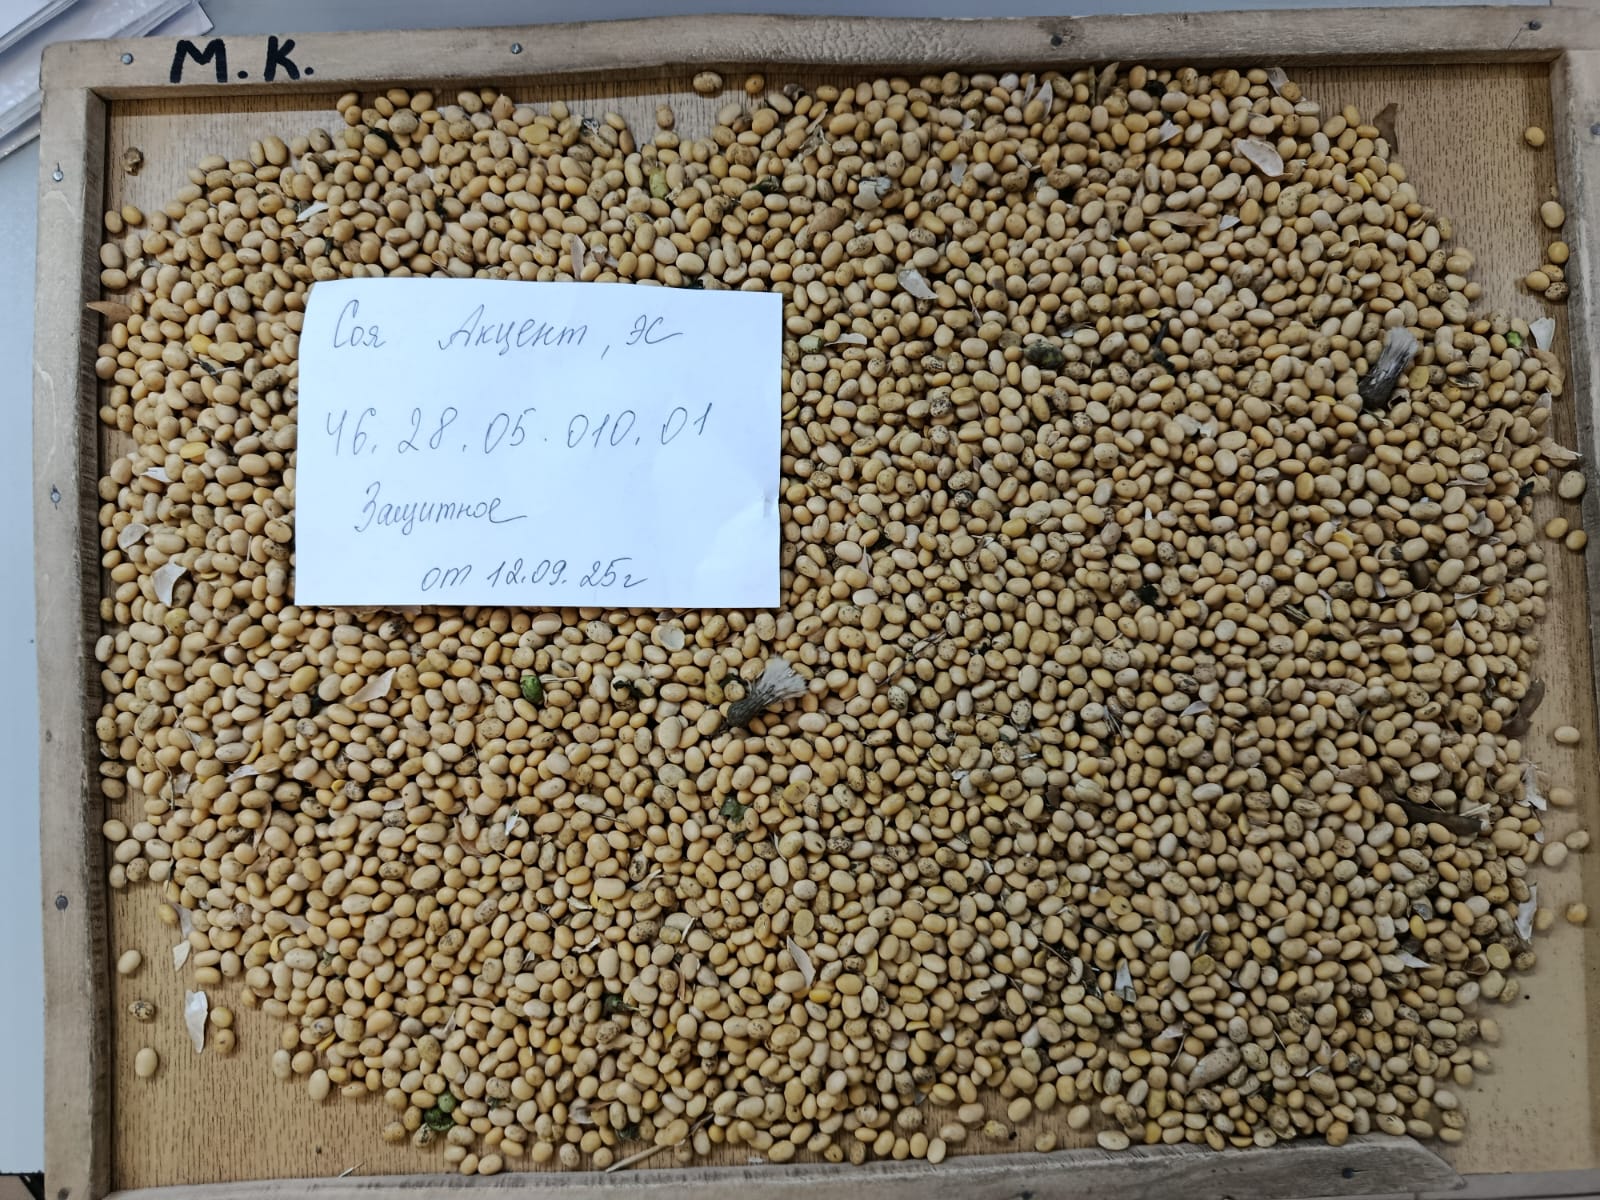 М.К.
Соя Акцент, ЭС
Ч6.28.05.010.01
Защитное
от 12.09.25г